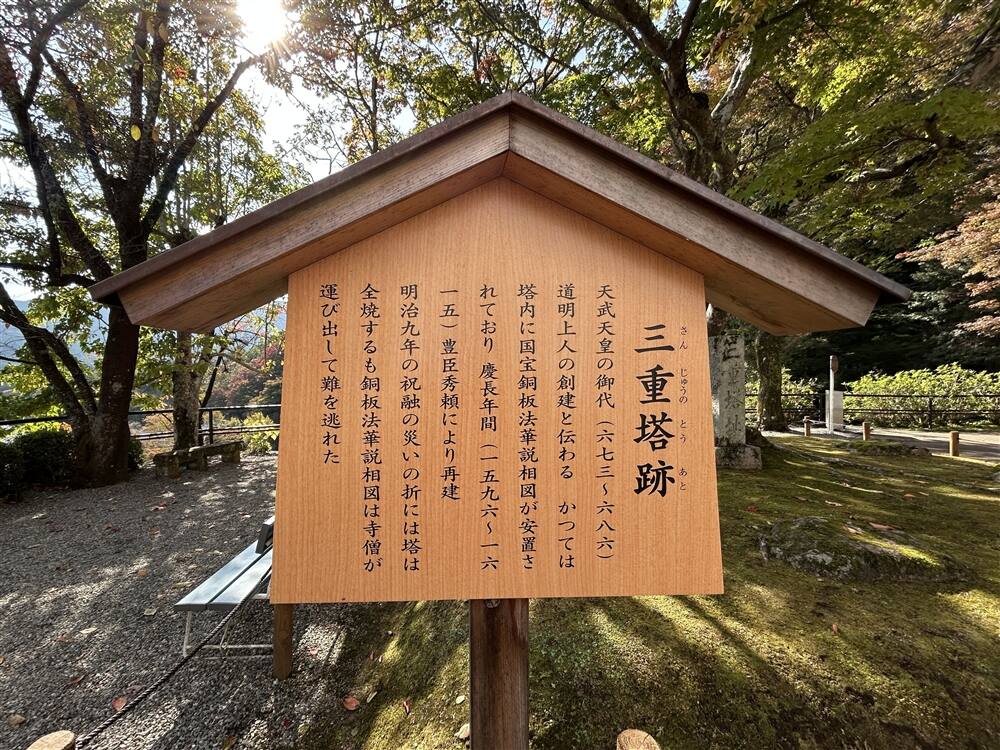 三重塔跡
さん じゅうの とう あと
天武天皇の御代（六七三～六八六）
道明上人の創建と伝わる　かつては
塔内に国宝銅板法華説相図が安置さ
れており 慶長年間（一五九六～一六
一五）豊臣秀頼により再建
明治九年の祝融の災いの折には塔は
全焼するも銅板法華説相図は寺僧が
運び出して難を逃れた